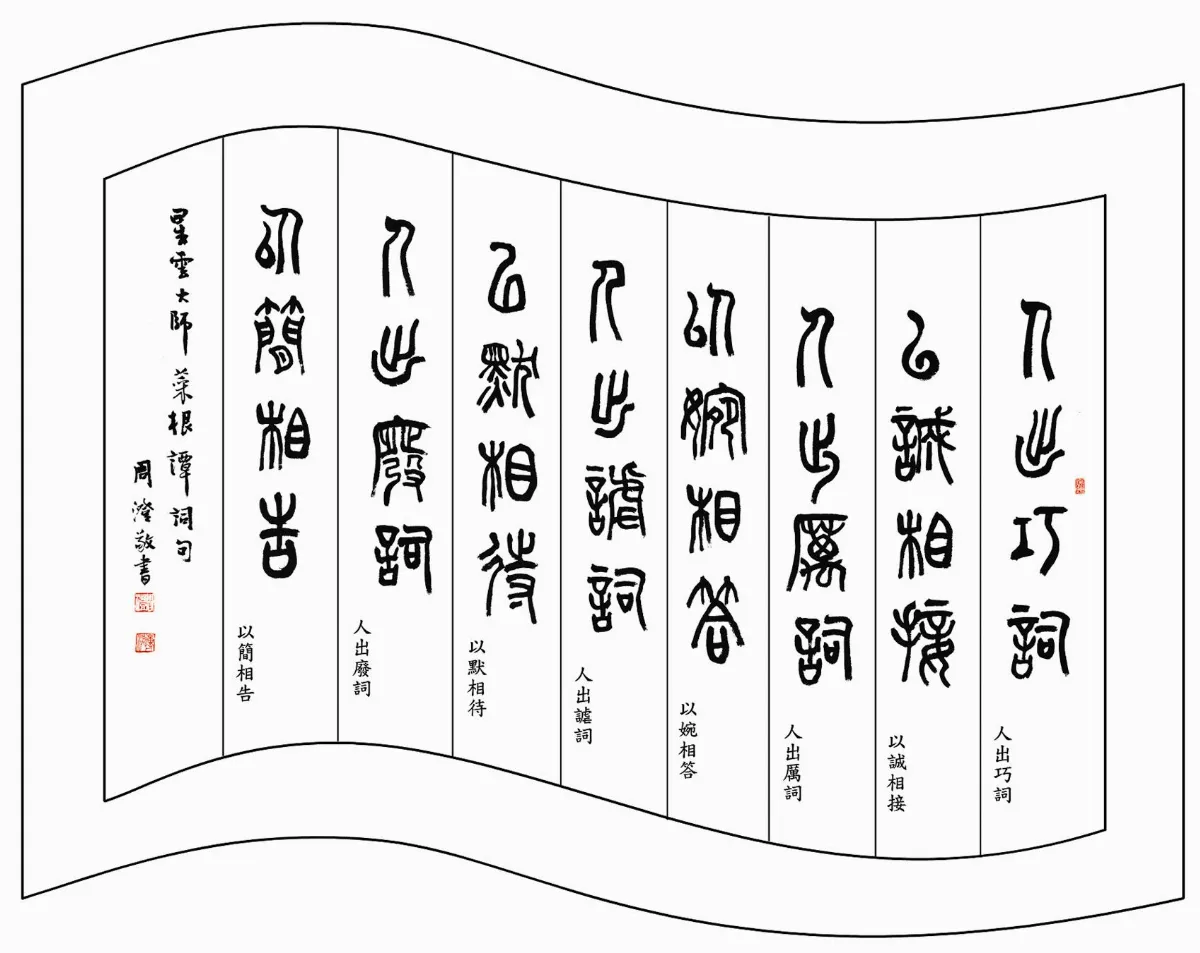 人出巧詞
人出巧詞
以誠相接
以誠相接
人出厲詞
人出厲詞
以婉相答
以婉相答
人出謔詞
人出謔詞
以默相待
以默相待
人出廢詞
人出廢詞
以簡相告
以簡相告
星雲大師菜根譚詞句
周澄敬書